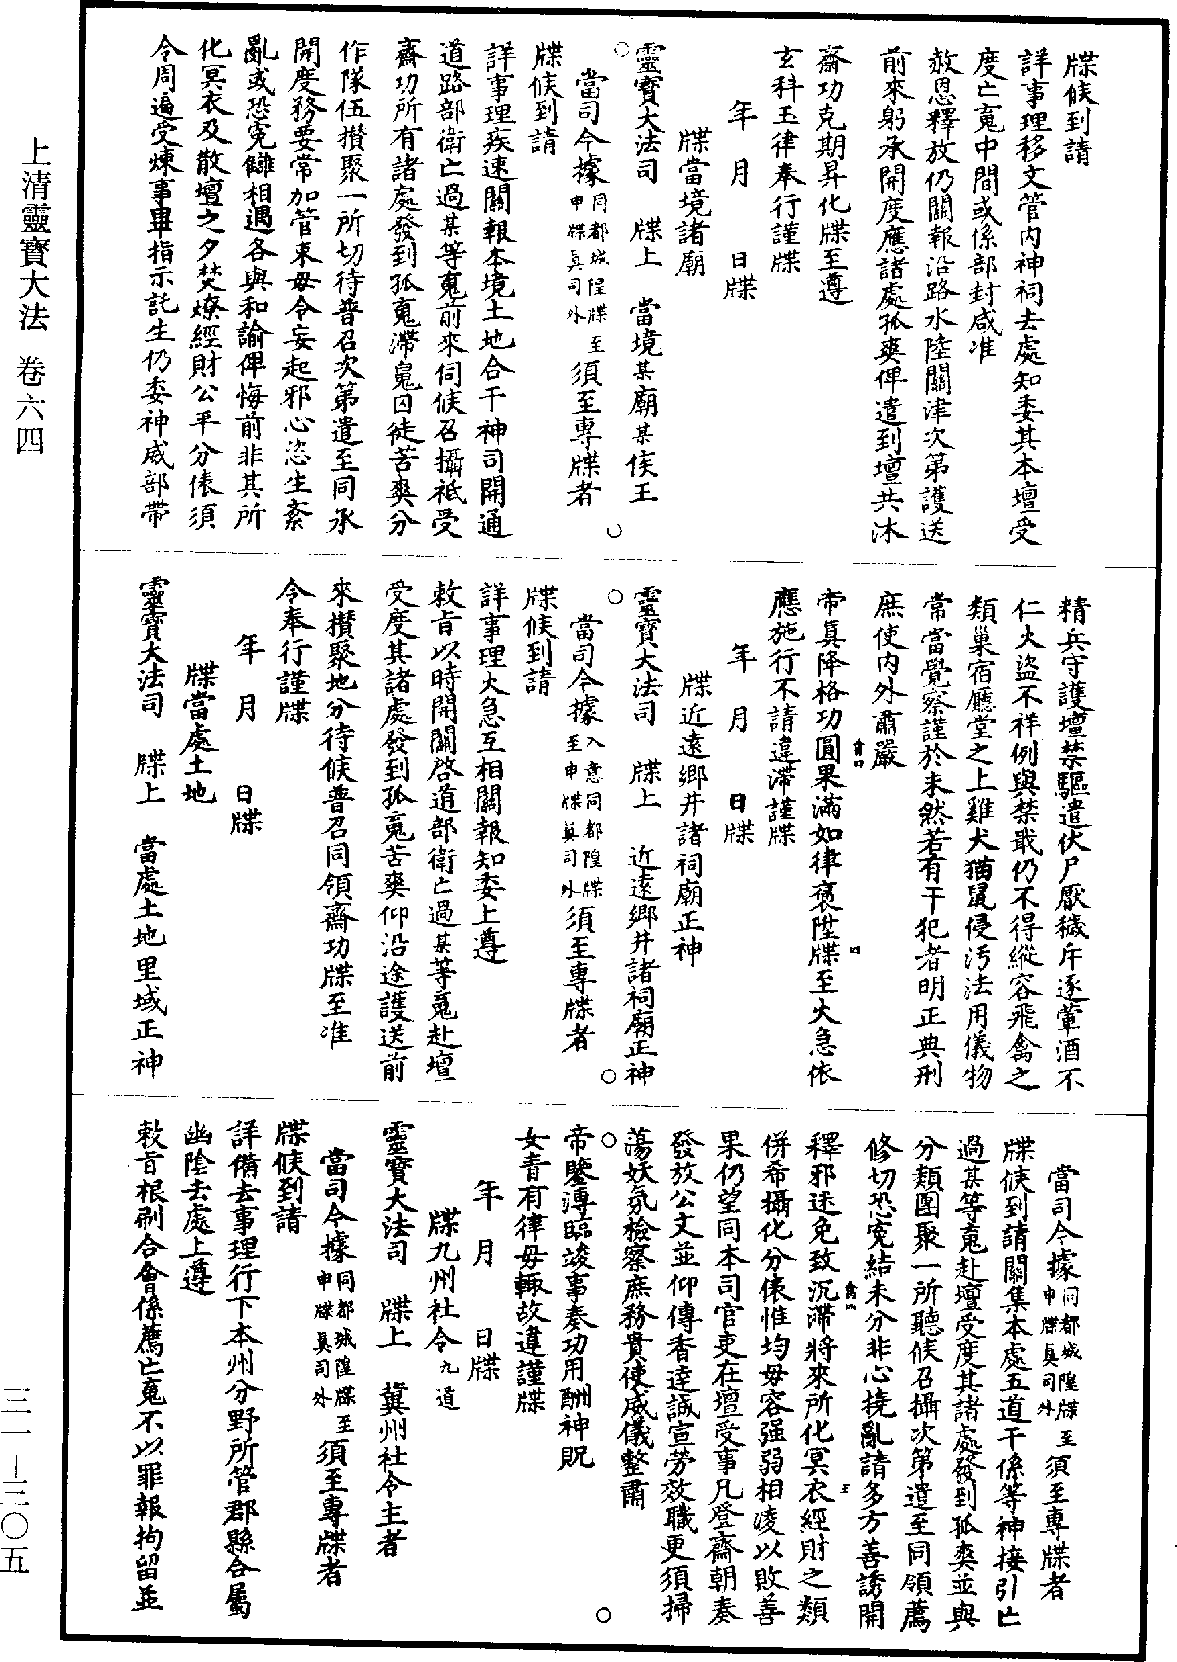 牒候到請
詳事理移文管内神祠去處知委其本壇受
度亡䰟中間或係部封咸准
赦恩釋放仍關報沿路水陸關津次第護送
前來躬承開度應諸處孤爽俾遣到壇共沐
齋功克期昇化牒至遵
玄科玉律奉行謹牒
年　月　　日牒
牒當境諸廟
靈寶大法司　牒上　當境某廟某侯王
當司今據同都城隍牒至申牒真司外須至專牒者
牒候到請
詳事理疾速關報本境土地合干神司開通
道路部衛亡過某等䰟前來伺候召攝祗受
齋功所有諸處發到孤䰟滯鬼囚徒苦爽分
作隊伍攢聚一所切待普召次第遣至同承
開度務要常加管束毋令妄起邪心恣生紊
亂或恐寃讎相遇各與和諭俾悔前非其所
化冥衣及散壇之夕焚燎經財公平分俵須
令周遍受煉事畢指示託生仍委神威部帶
精兵守護壇禁驅遣伏尸厭穢斥逐葷酒不
仁火盜不祥例與禁戢仍不得縱容飛禽之
類巢宿廳堂之上雞犬猫鼠侵污法用儀物
常當覺察謹於未然若有干犯者明正典刑
庶使内外肅嚴
帝真降格功圓果滿如律褒陞牒至火急依
應施行不請違滯謹牒
年　月　　日牒
牒近遠鄉井諸祠廟正神
靈寶大法司　牒上　近遠鄉井諸祠廟正神
當司今據入意同都隍牒至申牒真司外須至專牒者
牒候到請
詳事理火急互相關報知委上遵
敕旨以時開關啓道部衛亡過某等䰟赴壇
受度其諸處發到孤䰟苦爽仰沿途護送前
來攢聚地分待候普召同領齋功牒至准
令奉行謹牒
年　月　　日牒
牒當處土地
靈寶大法司　牒上　當處土地里域正神
當司今據同都城隍牒至申牒真司外須至專牒者
牒候到請關集本處五道干係等神接引亡
過某等䰟赴壇受度其諸處發到孤爽並與
分類團聚一所聽候召攝次第遣至同領薦
修切恐寃結未分非心撓亂請多方善誘開
釋邪迷免致沉滯將來所化冥衣經財之類
併希攝化分俵惟均毋容强弱相凌以敗善
果仍望同本司官吏在壇受事凡登齋朝奏
發放公文並仰傳香達誠宣勞效職更須掃
蕩妖氛檢察庶務貴使威儀整肅
帝鑒溥臨竣事奏功用酬神貺
女青有律毋輒故違謹牒
年　月　　日牒
牒九州社令九道
靈寶大法司　牒上　冀州社令主者
當司今據同都城隍牒至申牒真司外須至專牒者
牒候到請
詳備去事理行下本州分野所管郡縣合屬
幽陰去處上遵
敕旨根刷合會係薦亡䰟不以罪報拘留並
上清靈寶大法　卷六四
三一－三〇五